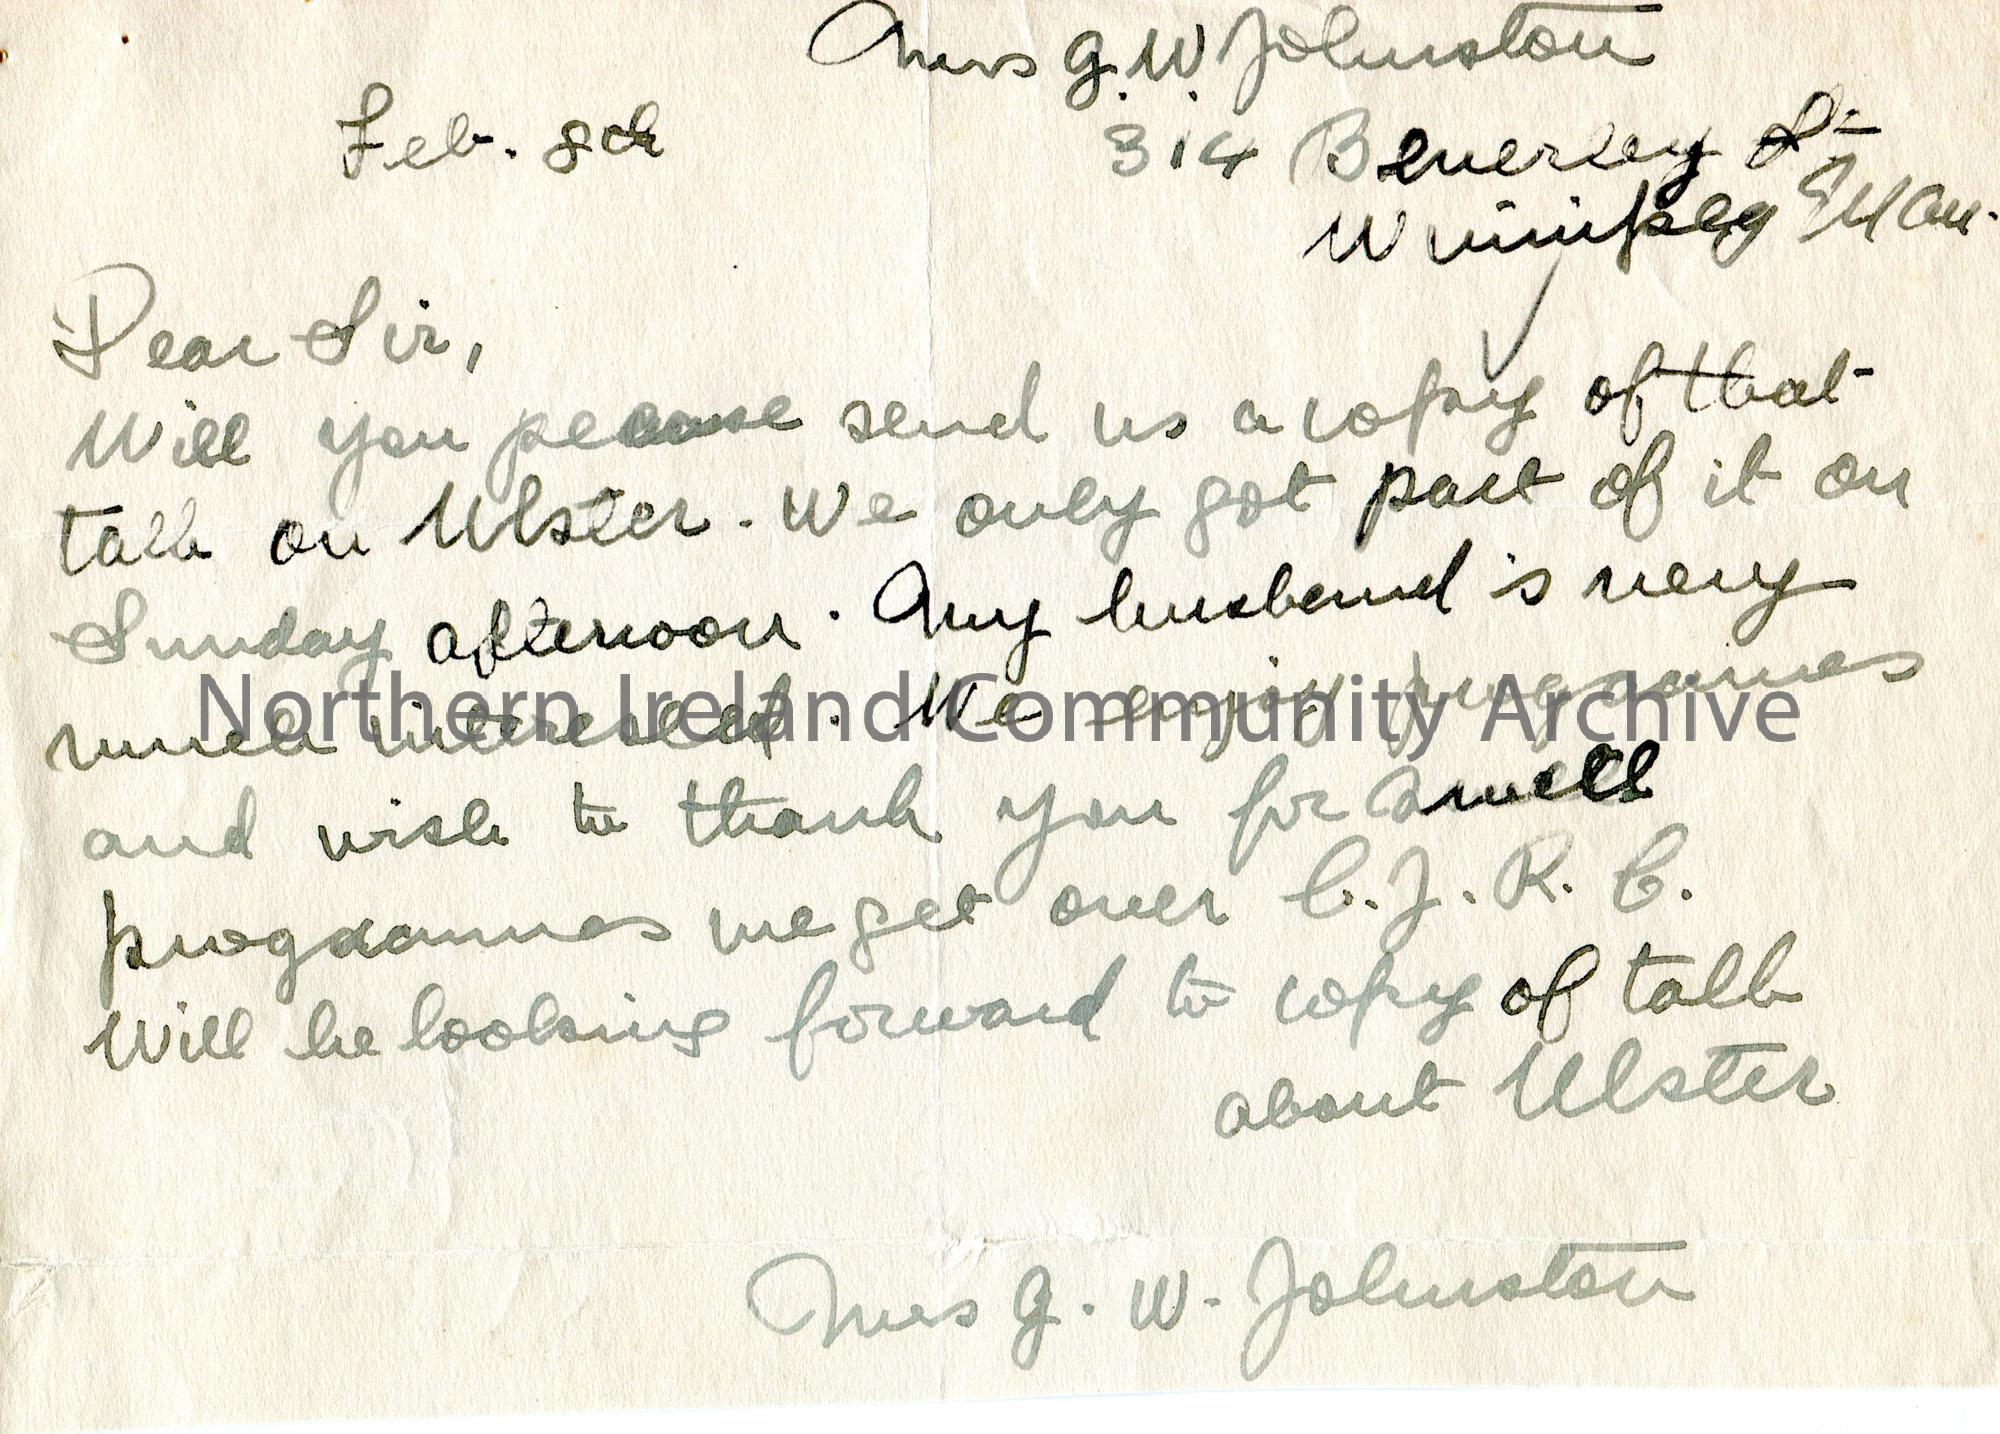 Mrs G. W. Johnston
Feb. 8th
314 Beverley St
Winnipeg Man.
Dear Sir,
Will you please send us a copy of that
talk on Ulster. We only got part of it on
Sunday afternoon. My husband is very
much interested. We enjoy programes
and wish to thank you for
programmes we get over C. J. R. C.
Will be looking forward to copy of talk
about Ulster
Mrs G. W. Johnston
Northern Ireland Community Archive